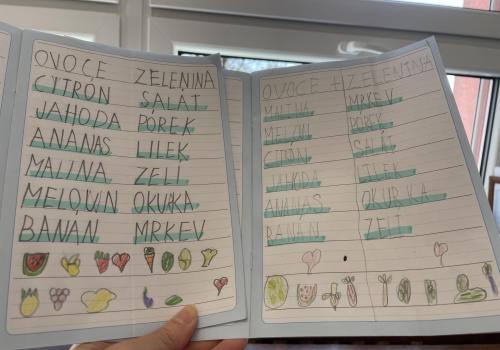 OVOCE ZELENINA
CYTRÓN SALÁT
JAHODA PÓREK
ANANAS LILEK
MALINA ZELÍ
MELOUN OKUKA
BANÁN MRKEV
OVOCE + ZELENINA
MALINA MRKEV
MELOUN PÓREK
CITRÓN SALÁT
JAHODA LILEK
ANANAS OKURKA
BANÁN ZELÍ